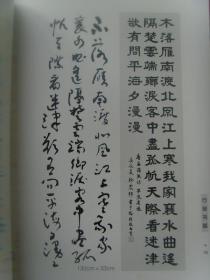 木落雁南渡北風江上寒我家襄水曲遙
隔楚雲端鄉淚客中盡孤帆天際看迷津
欲有問平海夕漫漫
木落雁南渡北風江上寒我家
襄水曲遙隔楚雲端鄉淚客中盡孤
帆天際看迷津欲有問平海夕漫
漫